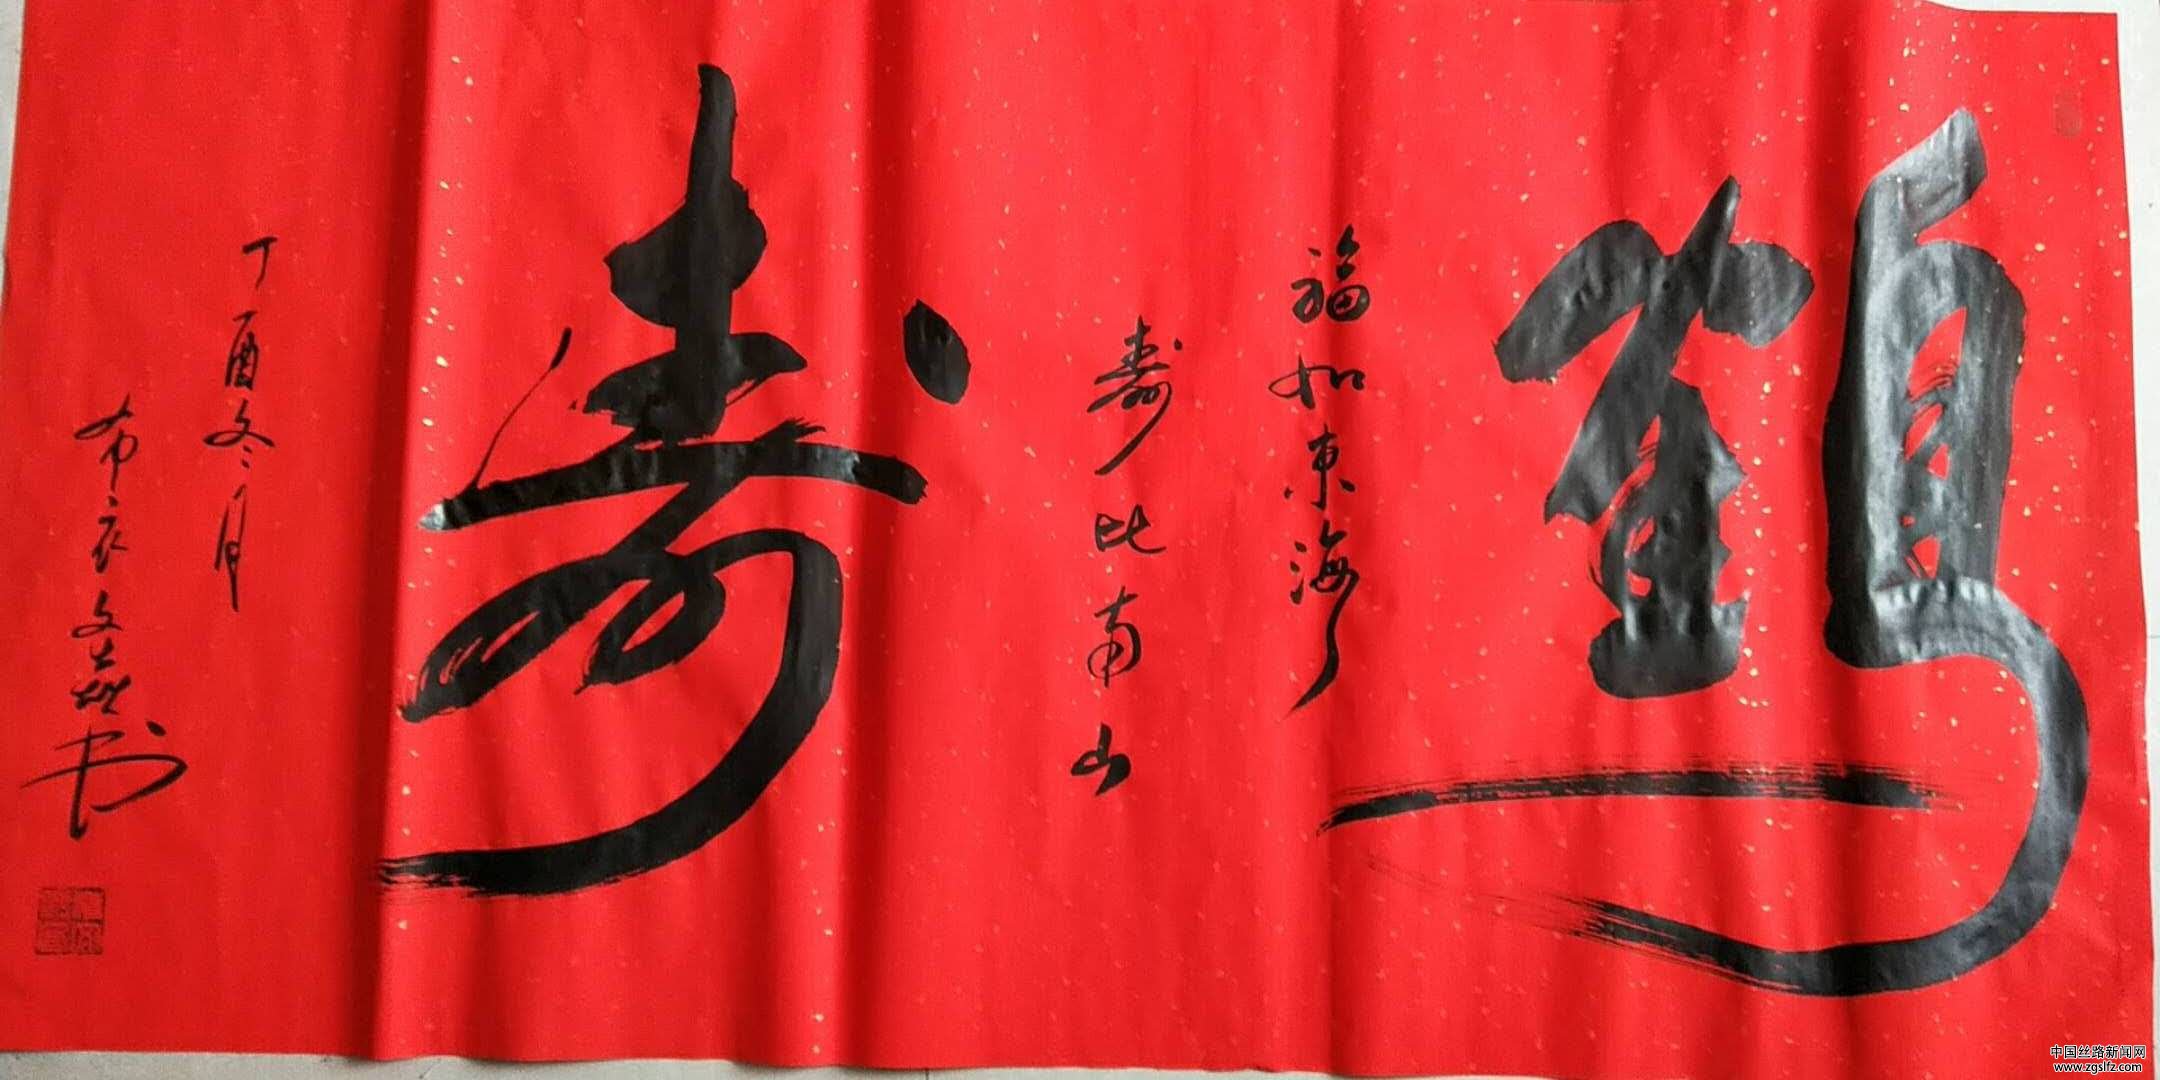 鶴
福如東海
壽比南山
壽
丁酉冬月
布衣文士斌书
中国丝路新闻网
www.zgslfz.com